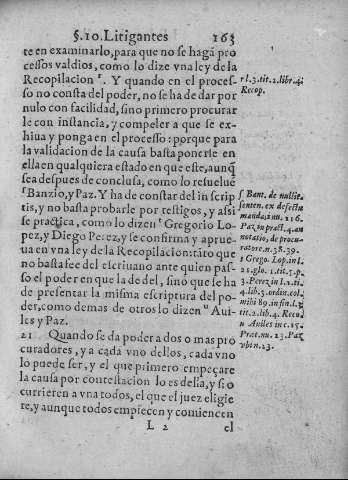 §.10. Litigantes 163
te en examinarlo, para que no se hagã pro
cessos valdios, como lo dize vna ley de la
Recopilacion r. Y quando en el proces-
so no consta del poder, no se ha de dar por
nulo con facilidad, sino primero procurar
le con instancia, y compeler a que se ex-
hiua y ponga en el processo: porque para
la validacion de la causa basta ponerse en
ella en qualquiera estado en que este, aunq̃
sea despues de conclusa, como lo resuelue
s Banzio, y Paz. Y ha de constar del in scrip
tis, y no basta probarle por testigos, y assi
se practica, como lo dizen t Gregorio Lo-
pez, y Diego Perez, y se confirma y aprue-
ua en vna ley de la Recopilacion: tãto que
no basta fee del escriuano ante quien pas-
so el poder en que la de del, sino que se ha
de presentar la misma escriptura del po-
der, como demas de otros lo dizen u Aui-
les y Paz.
21 Quando se da poder a dos o mas pro
curadores, y a cada vno dellos, cada vno
lo puede ser, y el que primero empeçare
la causa por contestacion lo es della, y si o
currieren a vna todos, el que el juez eligie
re, y aunque todos empiecen y comiencen
L 2 el
r l. 3. tit. 2. libr. 4.
Recop.
s Bant. de nullit.
senten. ex defectu
manda. nu. 216.
Paz in pract. 4. an
notatio, de procu-
ratore. n. 38. 39.
t Grego. Lop. in l.
21. glo. 1. tit. 5. p.
3. Perez in l. 2. ti.
4. lib. 3. ordin. col.
mihi 89. in fin. l. 2.
tit. 2. lib. 4. Reco.
u Auiles in c. 15.
Præt. nu. 23. Paz
vbi n. 23.